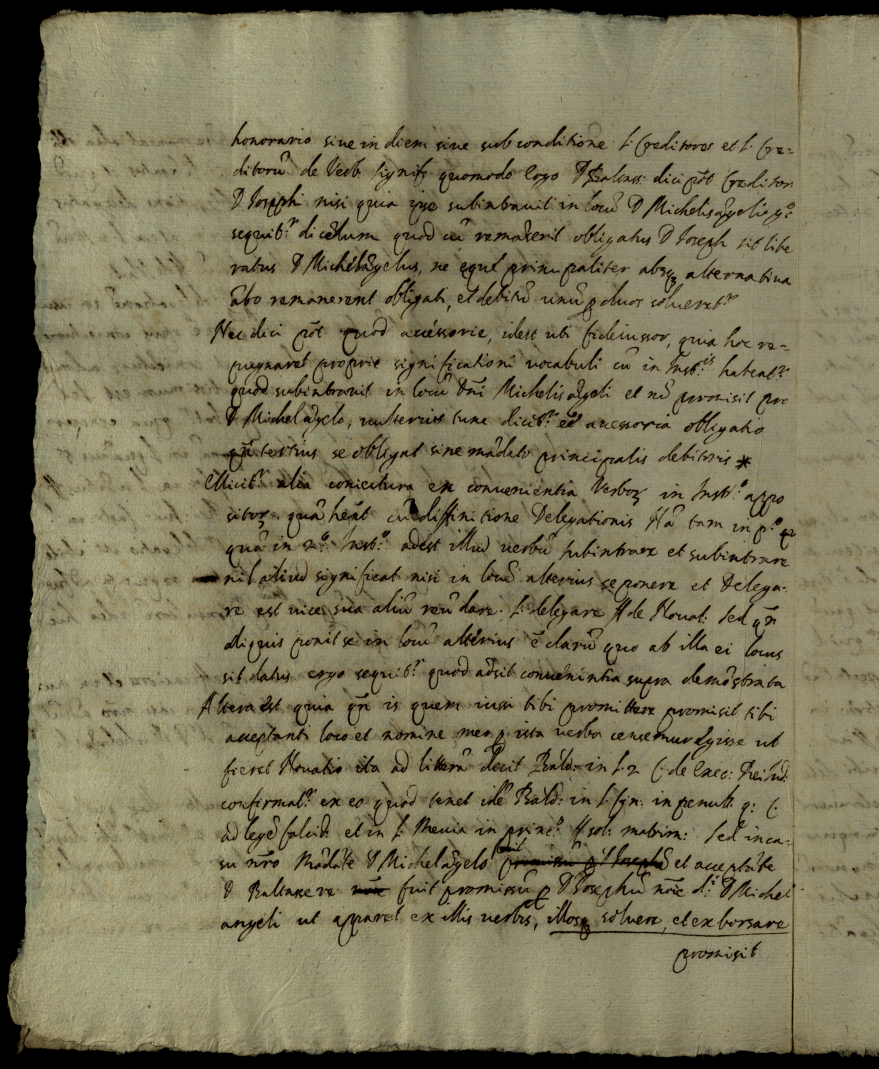 honorario sive in diem sive sub conditione l. Creditores et l. Cre=
ditorū de Verb. signif: quomodo ergo D Baltass: dici pōt Creditor
D Josephi nisi quia ipse subintravit in locū D Michelisāgeli
sequit.r dicēdum quod cū remāserit obligatus D Joseph sit libe
ratus D Michelāgelus, ne eque principaliter absq alternativa
ābo remanerent obligati, et debitū unū p duos solveret.r
Nec dici pōt quod accessorie, idest uti fideiussor, quia hoc re=
pugnaret proprie significationi vocabuli cū in Inst.is habeat.r
quod subintravit in locū Dni Michelisāgeli et nō promisit pro
D Michelāgelo, ulterius tunc dicit.r eē accessoria obligatio
qn tertius se obligat sine mādato principalis debitoris *
Ellicit.r alia coniectura ex convenientia Verboʒ in Inst.o appo
sitoʒ quā hēnt cū diffinitione Delegationis Nā tam in p.o
quā in 2.o Inst.o adest illud verbū subintrare et subintrare
nil aliud significat nisi in locū alterius se ponere et Delega-
re est vice sua aliū reū dare. l: delegare ff de Novat: sed qn
aliquis ponit se in locū alterius ē clarū quo ab illa ei locus
sit datus ergo sequit.r quod adsit convenientia supra demōstrata
Altera est quia qn is quem iussi tibi promittere promisit tibi
acceptanti loco et nomine meo p ista verba censemur egisse ut
fieret Novatio ita ad litterā docet Bald: in l. 2 C: de Exec: Rei Jud:
confirmat.r ex eo quod tenet idē Bald: in l. fin: in penult. q: C:
ad legē falcid: et in l. Mevia in princ.o ff sol: matrim: Sed in ca-
su nr̄o Mādāte D Michelāgelo et acceptāte
D Baltassere fuit promissū p D Josephū nōie d.i D Michel
angeli ut apparet ex illis verbis, illosq solvere, et exborsare
promisit